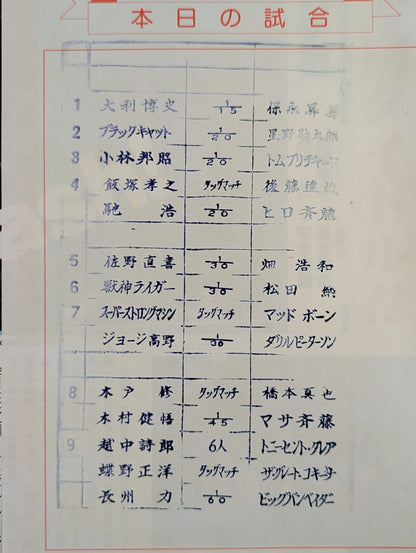 本日の試合
1 大利博史 1/15 保永昇男
2 ブラックキャット 1/20 星野勘太郎
3 小林邦昭 1/20 トムプリチャード
4 飯塚孝之 タッグマッチ 後藤達俊
馳 浩 1/20 ヒロ斉藤
5 佐野直喜 1/30 畑 浩和
6 獣神ライガー 1/30 松田 納
7 スーパーストロングマシン タッグマッチ マッド ボーン
ジョージ高野 1/30 ダリルピーターソン
8 木戸 修 タッグマッチ 橋本真也
木村健悟 1/45 マサ斉藤
9 越中詩郎 6人 トニーセント・クレア
蝶野正洋 タッグマッチ ザ・グレート・コキーナ
長州 力 1/60 ビッグバンベイダー